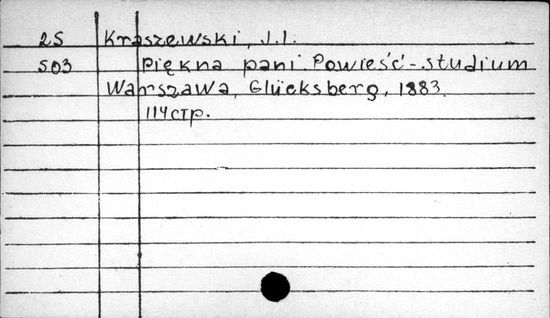 25 Kraszewski, J.I.
503 Piękna pani Powieść-studium
Warszawa, Glücksberg, 1883.
114 стр.